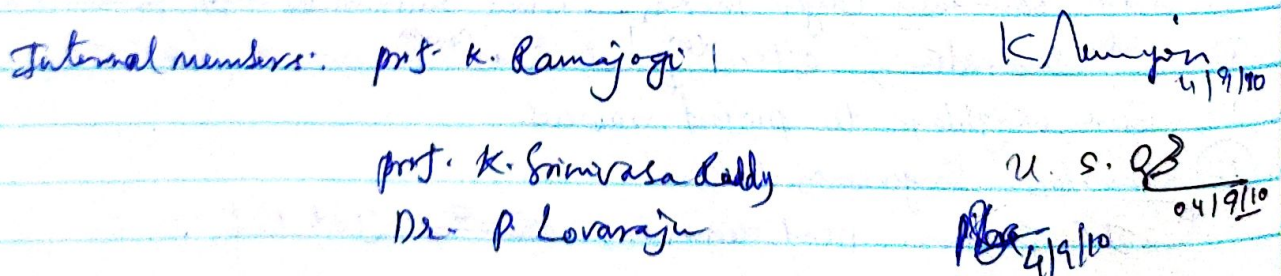 Internal members: prof. K. Ramajogi K
4/9/10
prof. K. Srinivasa Reddy K. S.
04/9/10
Dr. P. Lovaraju 4/9/10